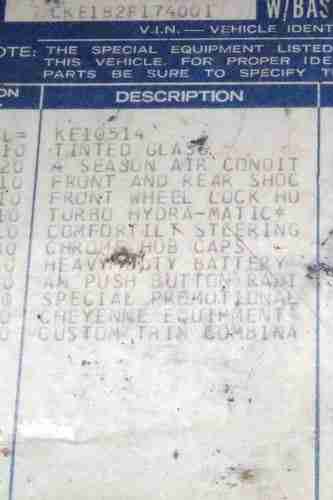 CKE182F174001 W/BAS
V.I.N. — VEHICLE IDENT
OTE: THE SPECIAL EQUIPMENT LISTED
THIS VEHICLE. FOR PROPER IDE
PARTS BE SURE TO SPECIFY T
ON DESCRIPTION
L= KE10514
10 TINTED GLASS
20 4 SEASON AIR CONDIT
10 FRONT AND REAR SHOC
10 FRONT WHEEL LOCK HU
40 TURBO HYDRA-MATIC*
0 COMFORTILT STEERING
0 CHROME HUB CAPS
0 HEAVY DUTY BATTERY
0 AM PUSH BUTTON RADI
0 SPECIAL PROMOTIONAL
0 CHEYENNE EQUIPMENT
0 CUSTOM TRIM COMBINA